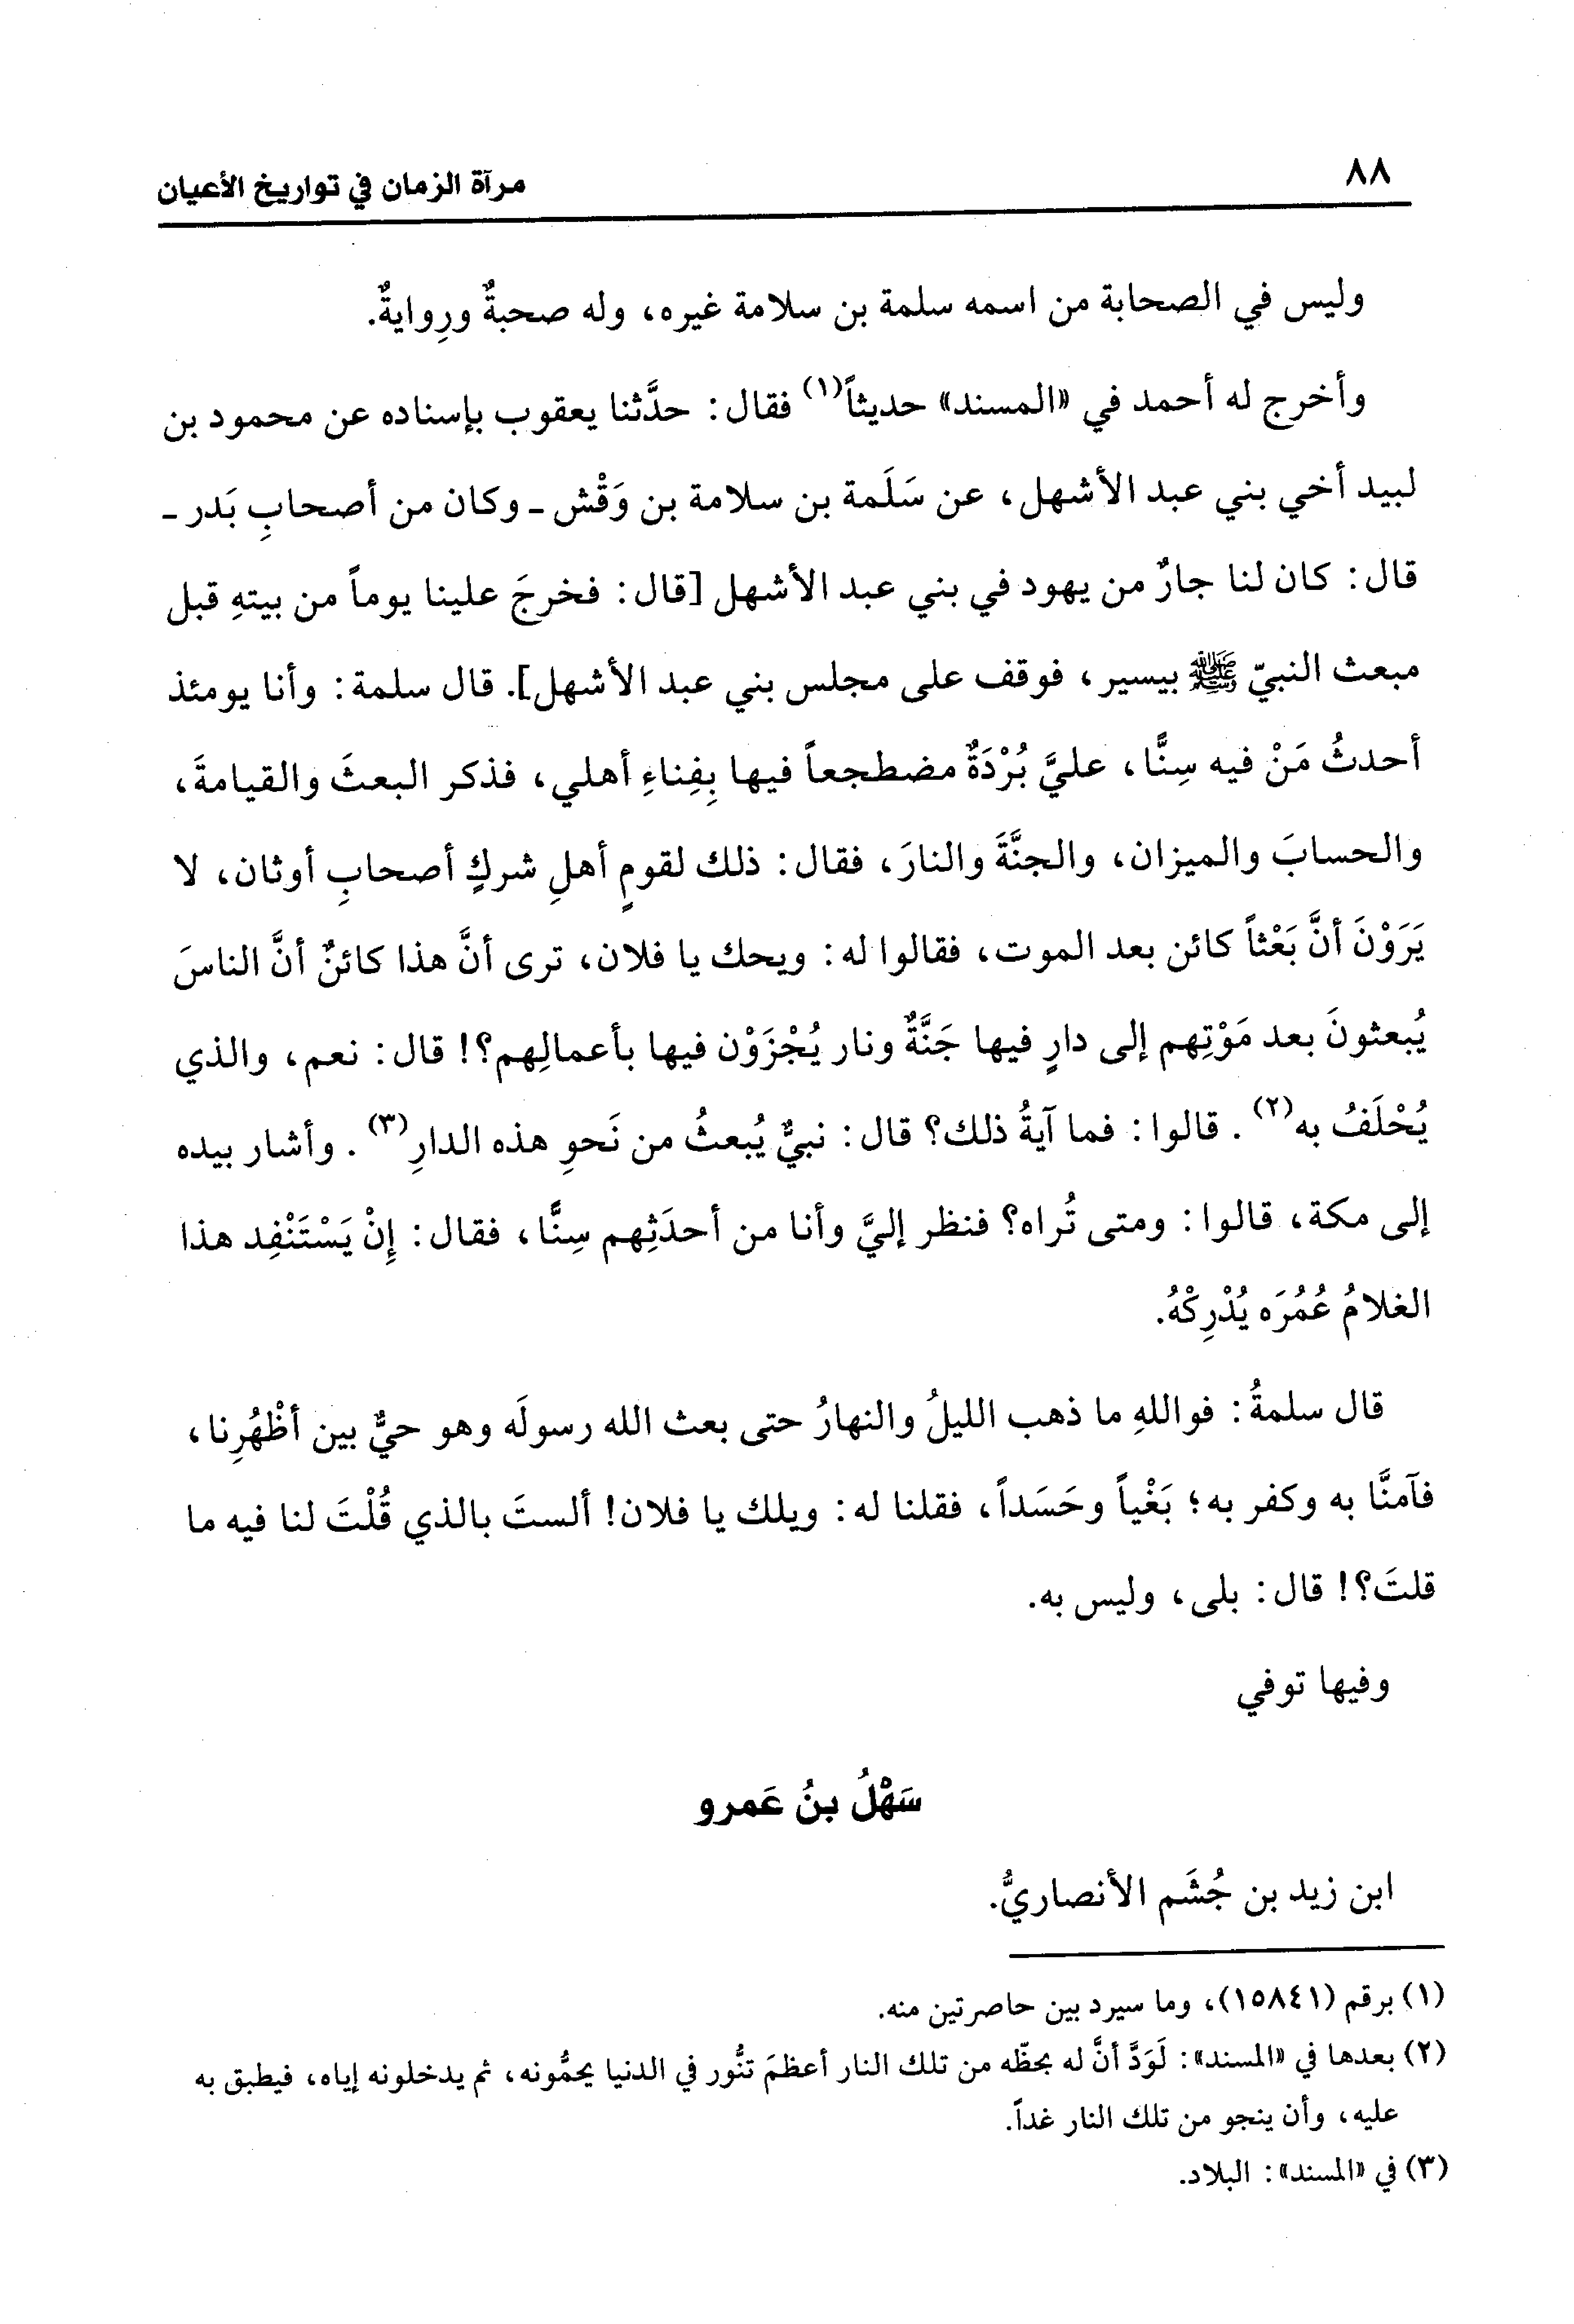 ٨٨
مرآة الزمان في تواريخ الأعيان
وليس في الصحابة من اسمه سلمة بن سلامة غيره، وله صحبةٌ ورِوايةٌ.
وأخرج له أحمد في «المسند» حديثاً(١) فقال: حدَّثنا يعقوب بإسناده عن محمود بن
لبيد أخي بني عبد الأشهل، عن سَلَمة بن سلامة بن وَقْش ـ وكان من أصحابِ بَدر ـ
قال: كان لنا جارٌ من يهود في بني عبد الأشهل [قال: فخرجَ علينا يوماً من بيتهِ قبل
مبعث النبيّ ﷺ بيسير، فوقف على مجلس بني عبد الأشهل]. قال سلمة: وأنا يومئذ
أحدثُ مَنْ فيه سِنًّا، عليَّ بُرْدَةٌ مضطجعاً فيها بِفِناءِ أهلي، فذكر البعثَ والقيامةَ،
والحسابَ والميزان، والجنَّةَ والنارَ، فقال: ذلك لقومٍ أهلِ شركٍ أصحابِ أوثان، لا
يَرَوْنَ أنَّ بَعْثاً كائن بعد الموت، فقالوا له: ويحك يا فلان، ترى أنَّ هذا كائنٌ أنَّ الناسَ
يُبعثونَ بعد مَوْتِهم إلى دارٍ فيها جَنَّةٌ ونار يُجْزَوْن فيها بأعمالِهم؟! قال: نعم، والذي
يُحْلَفُ به(٢). قالوا: فما آيةُ ذلك؟ قال: نبيٌّ يُبعثُ من نَحوِ هذه الدارِ(٣). وأشار بيده
إلى مكة، قالوا: ومتى تُراه؟ فنظر إليَّ وأنا من أحدَثِهم سِنًّا، فقال: إِنْ يَسْتَنْفِد هذا
الغلامُ عُمُرَه يُدْرِكْهُ.
قال سلمةُ: فواللهِ ما ذهب الليلُ والنهارُ حتى بعث الله رسولَه وهو حيٌّ بين أظْهُرِنا،
فآمنَّا به وكفر به؛ بَغْياً وحَسَداً، فقلنا له: ويلك يا فلان! ألستَ بالذي قُلْتَ لنا فيه ما
قلتَ؟! قال: بلى، وليس به.
وفيها توفي
سَهْلُ بنُ عَمرو
ابن زيد بن جُشَم الأنصاريُّ.
(١) برقم (١٥٨٤١)، وما سيرد بين حاصرتين منه.
(٢) بعدها في «المسند»: لَوَدَّ أنَّ له بحظّه من تلك النار أعظمَ تنُّور في الدنيا يحمُّونه، ثم يدخلونه إياه، فيطبق به
عليه، وأن ينجو من تلك النار غداً.
(٣) في «المسند»: البلاد.